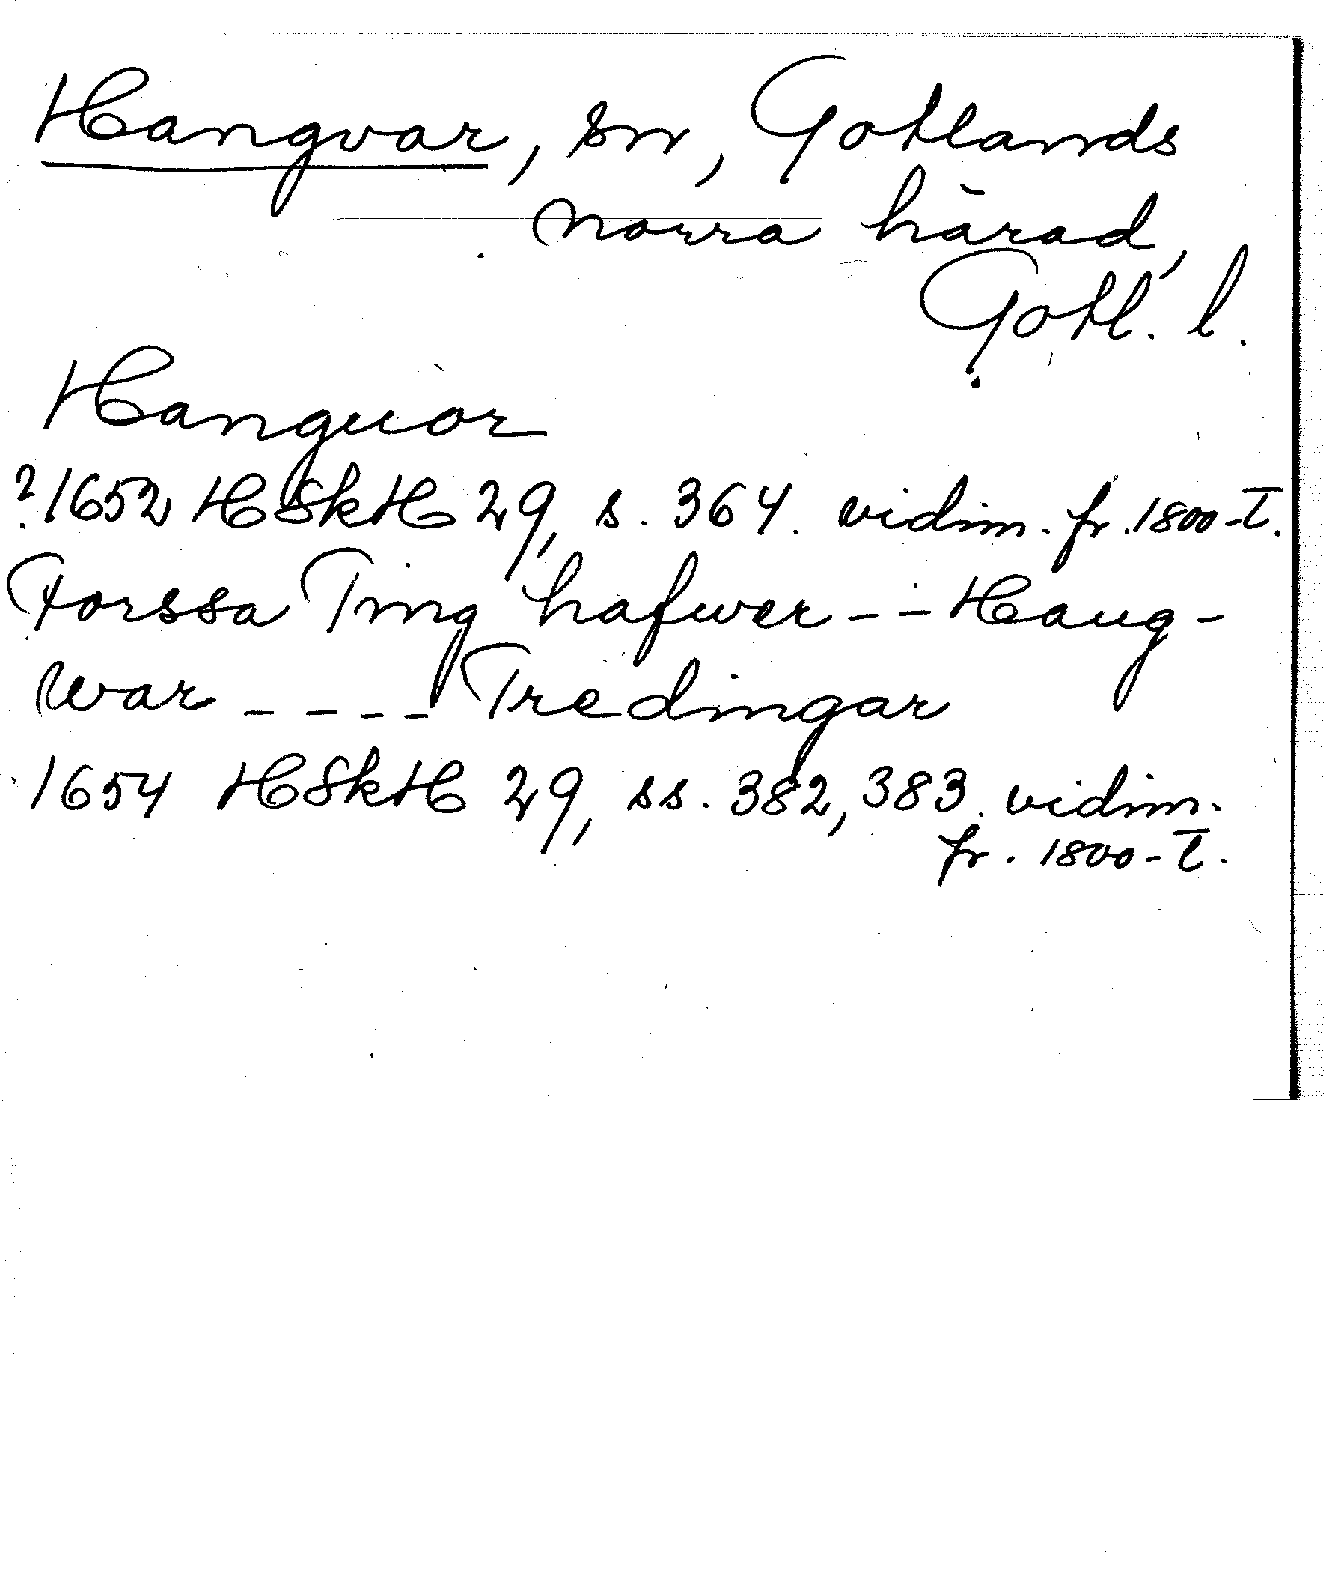 Hangvar, sn, Gotlands
norra härad,
Gotl. l.
Hanguor
?1652 HSkH 29, s. 364. vidim. fr. 1800-t.
Forssa Ting hafwer -- Haug-
war ---- Tredingar
1654 HSkH 29, ss. 382, 383. vidim.
fr. 1800-t.